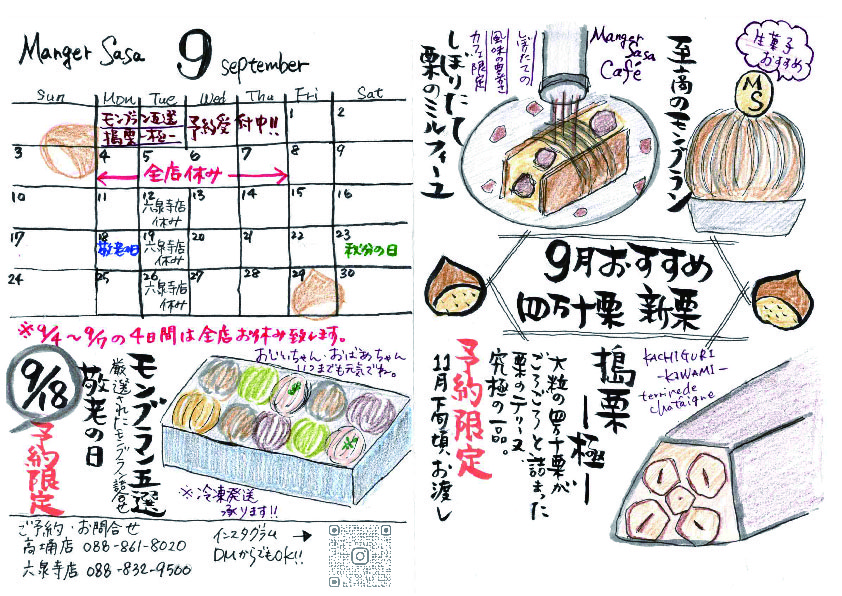 Manger Sasa 9 September
Sun Mon Tue Wed Thu Fri Sat
モンブラン五選 予約受付中!!
搗栗-極-
1 2
3 4 5 6 7 8 9
全店休み
10 11 12 13 14 15 16
六泉寺店
休み
17 18 19 20 21 22 23
敬老の日
六泉寺店
休み
秋分の日
24 25 26 27 28 29 30
六泉寺店
休み
※9/4～9/7の4日間は全店お休み致します。
9/18
予約限定
敬老の日
モンブラン五選
厳選されたモンブラン詰合せ
おじいちゃん・おばあちゃん
いつまでも元気でね。
※冷凍発送
承ります!!
ご予約・お問合せ
高埇店 088-861-8020
六泉寺店 088-832-9500
インスタグラム
DMからでもOK!!
しぼりたて
栗のミルフィーユ
カフェ限定
しぼりたての
Manger
Sasa
Café
至高のモンブラン
生菓子
おすすめ
MS
9月おすすめ
四万十栗 新栗
搗栗
-極-
KACHIGURI
-KIWAMI-
terrine de
chataigne
大粒の四万十栗が
ごろごろっと詰まった
栗のテリーヌ
究極の一品。
予約限定
11月下旬頃お渡し